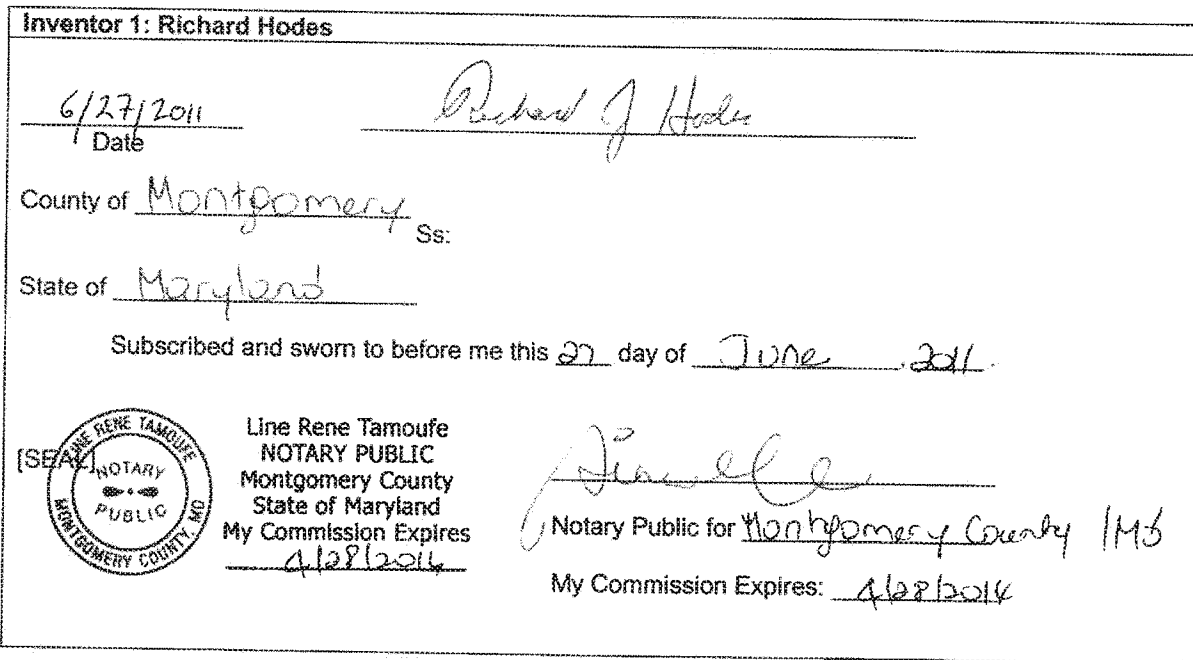 Inventor 1: Richard Hodes
6/27/2011 Richard J Hodes
Date
County of Montgomery
Ss:
State of Maryland
Subscribed and sworn to before me this 27 day of June, 2011.
[SEAL]
LINE RENE TAMOUFE
NOTARY
PUBLIC
MONTGOMERY COUNTY, MD
Line Rene Tamoufe
NOTARY PUBLIC
Montgomery County
State of Maryland
My Commission Expires
4/28/2014
Notary Public for Montgomery County / MD
My Commission Expires: 4/28/2014